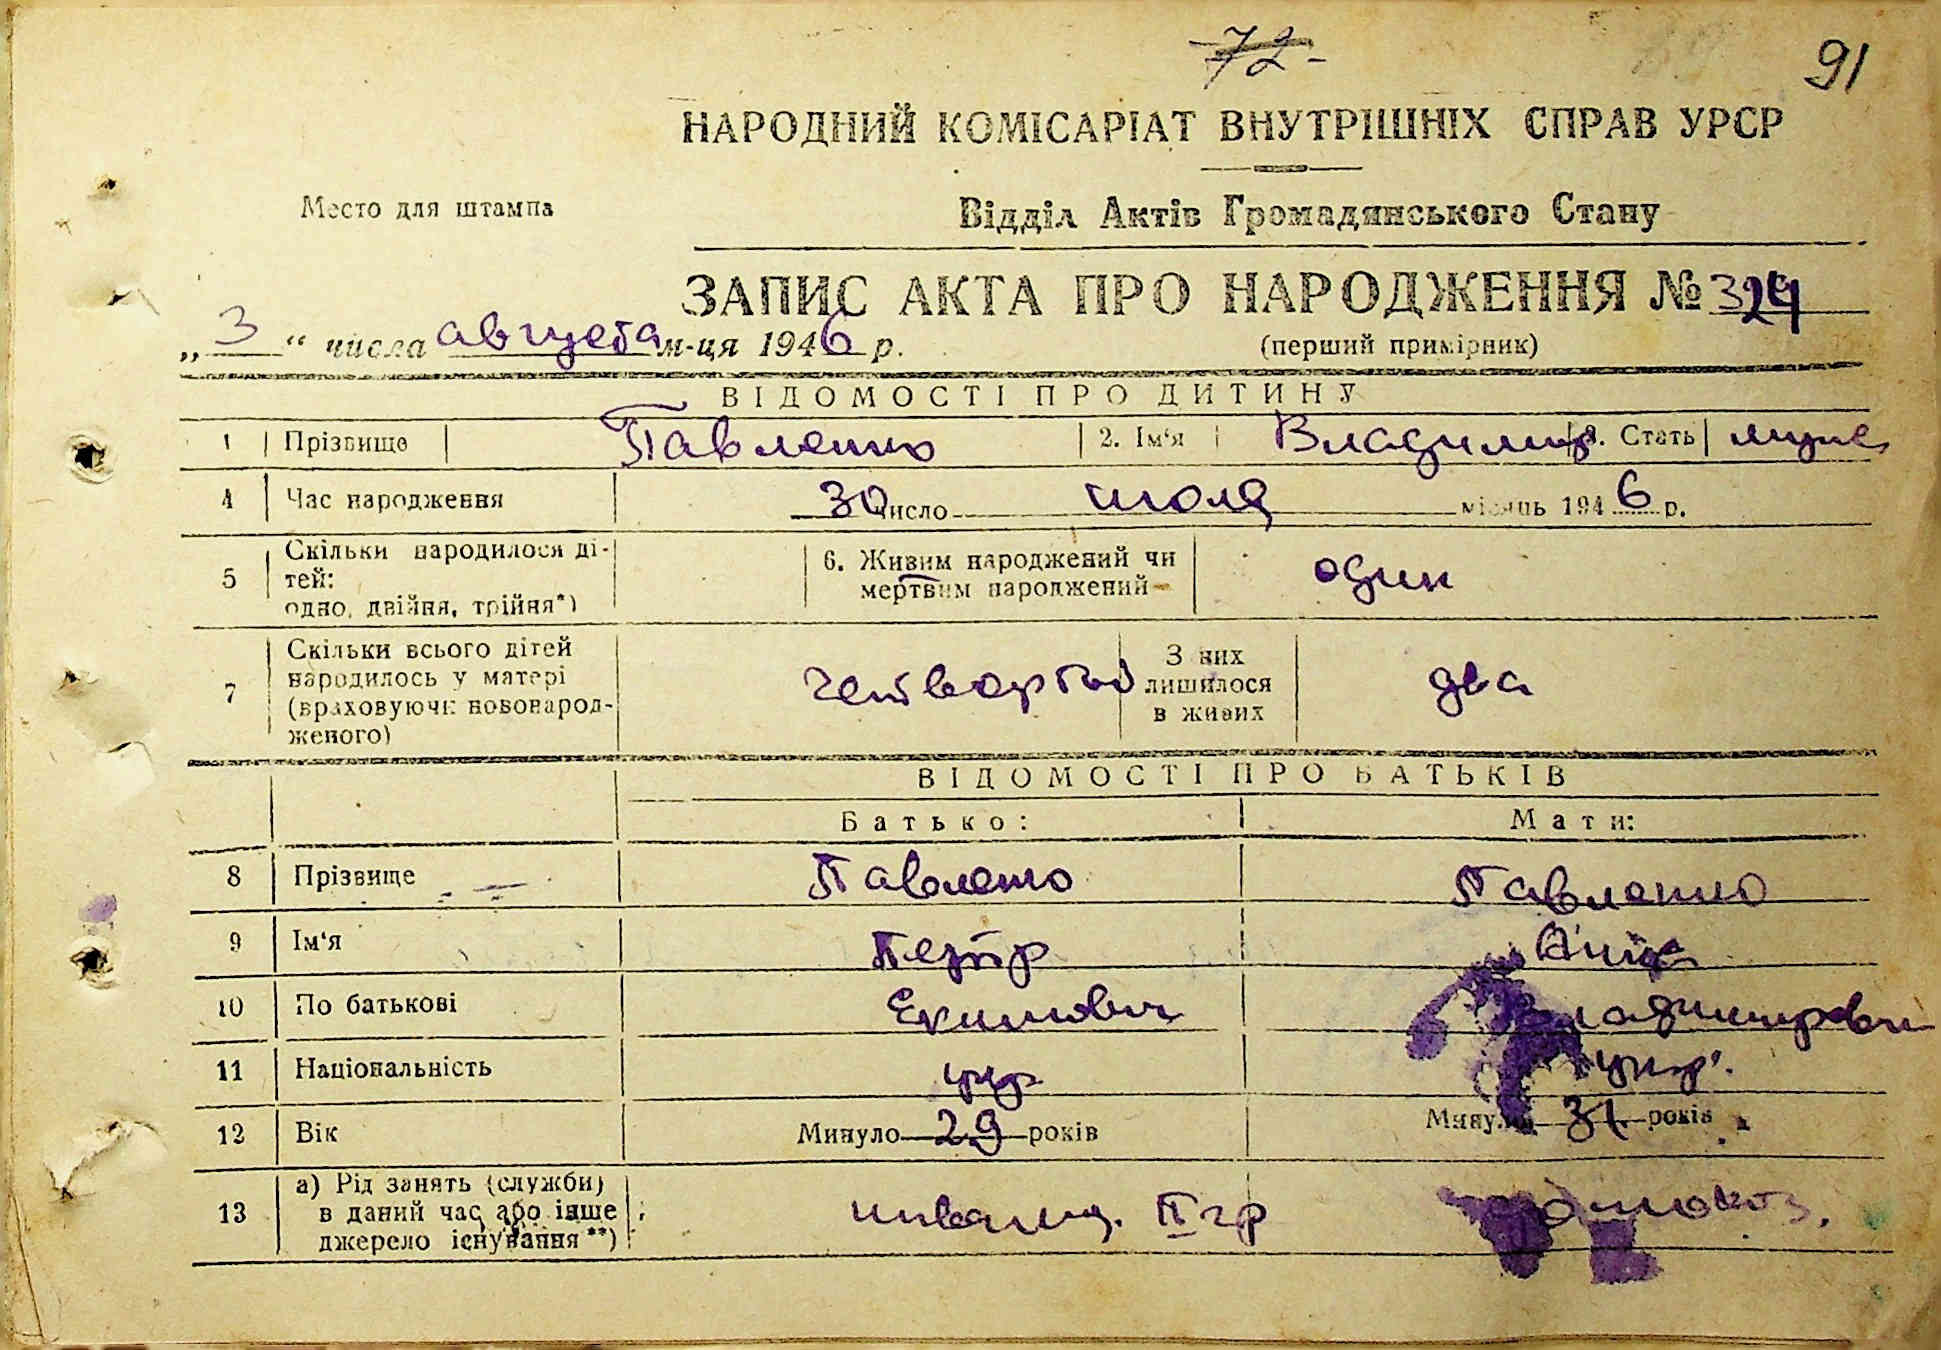 72
91
НАРОДНИЙ КОМІСАРІАТ ВНУТРІШНІХ СПРАВ УРСР
Место для штампа
Відділ Актів Громадянського Стану
ЗАПИС АКТА ПРО НАРОДЖЕННЯ №
„ 3 “ числа августа м-ця 1946 р.
(перший примірник)
ВІДОМОСТІ ПРО ДИТИНУ
1 Прізвище Павленко 2. Ім‘я Владимир 3. Стать
4 Час народження 30 число июля місяць 1946 р.
5 Скільки народилося ді-
тей:
одно, двійня, трійня*)
6. Живим народжений чи
мертвим народжений
один
7 Скільки всього дітей
народилось у матері
(враховуючи новонарод-
женого)
четвертый
З них
лишилося
в живих
два
ВІДОМОСТІ ПРО БАТЬКІВ
Батько: Мати:
8 Прізвище Павленко Павленко
9 Ім‘я Петр Анна
10 По батькові Екимович Владимировн
11 Національність укр укр.
12 Вік Минуло 29 років Минуло 31 років
13 а) Рід занять (служби)
в даний час або інше
джерело існування**)
инвалид. II гр домохоз.